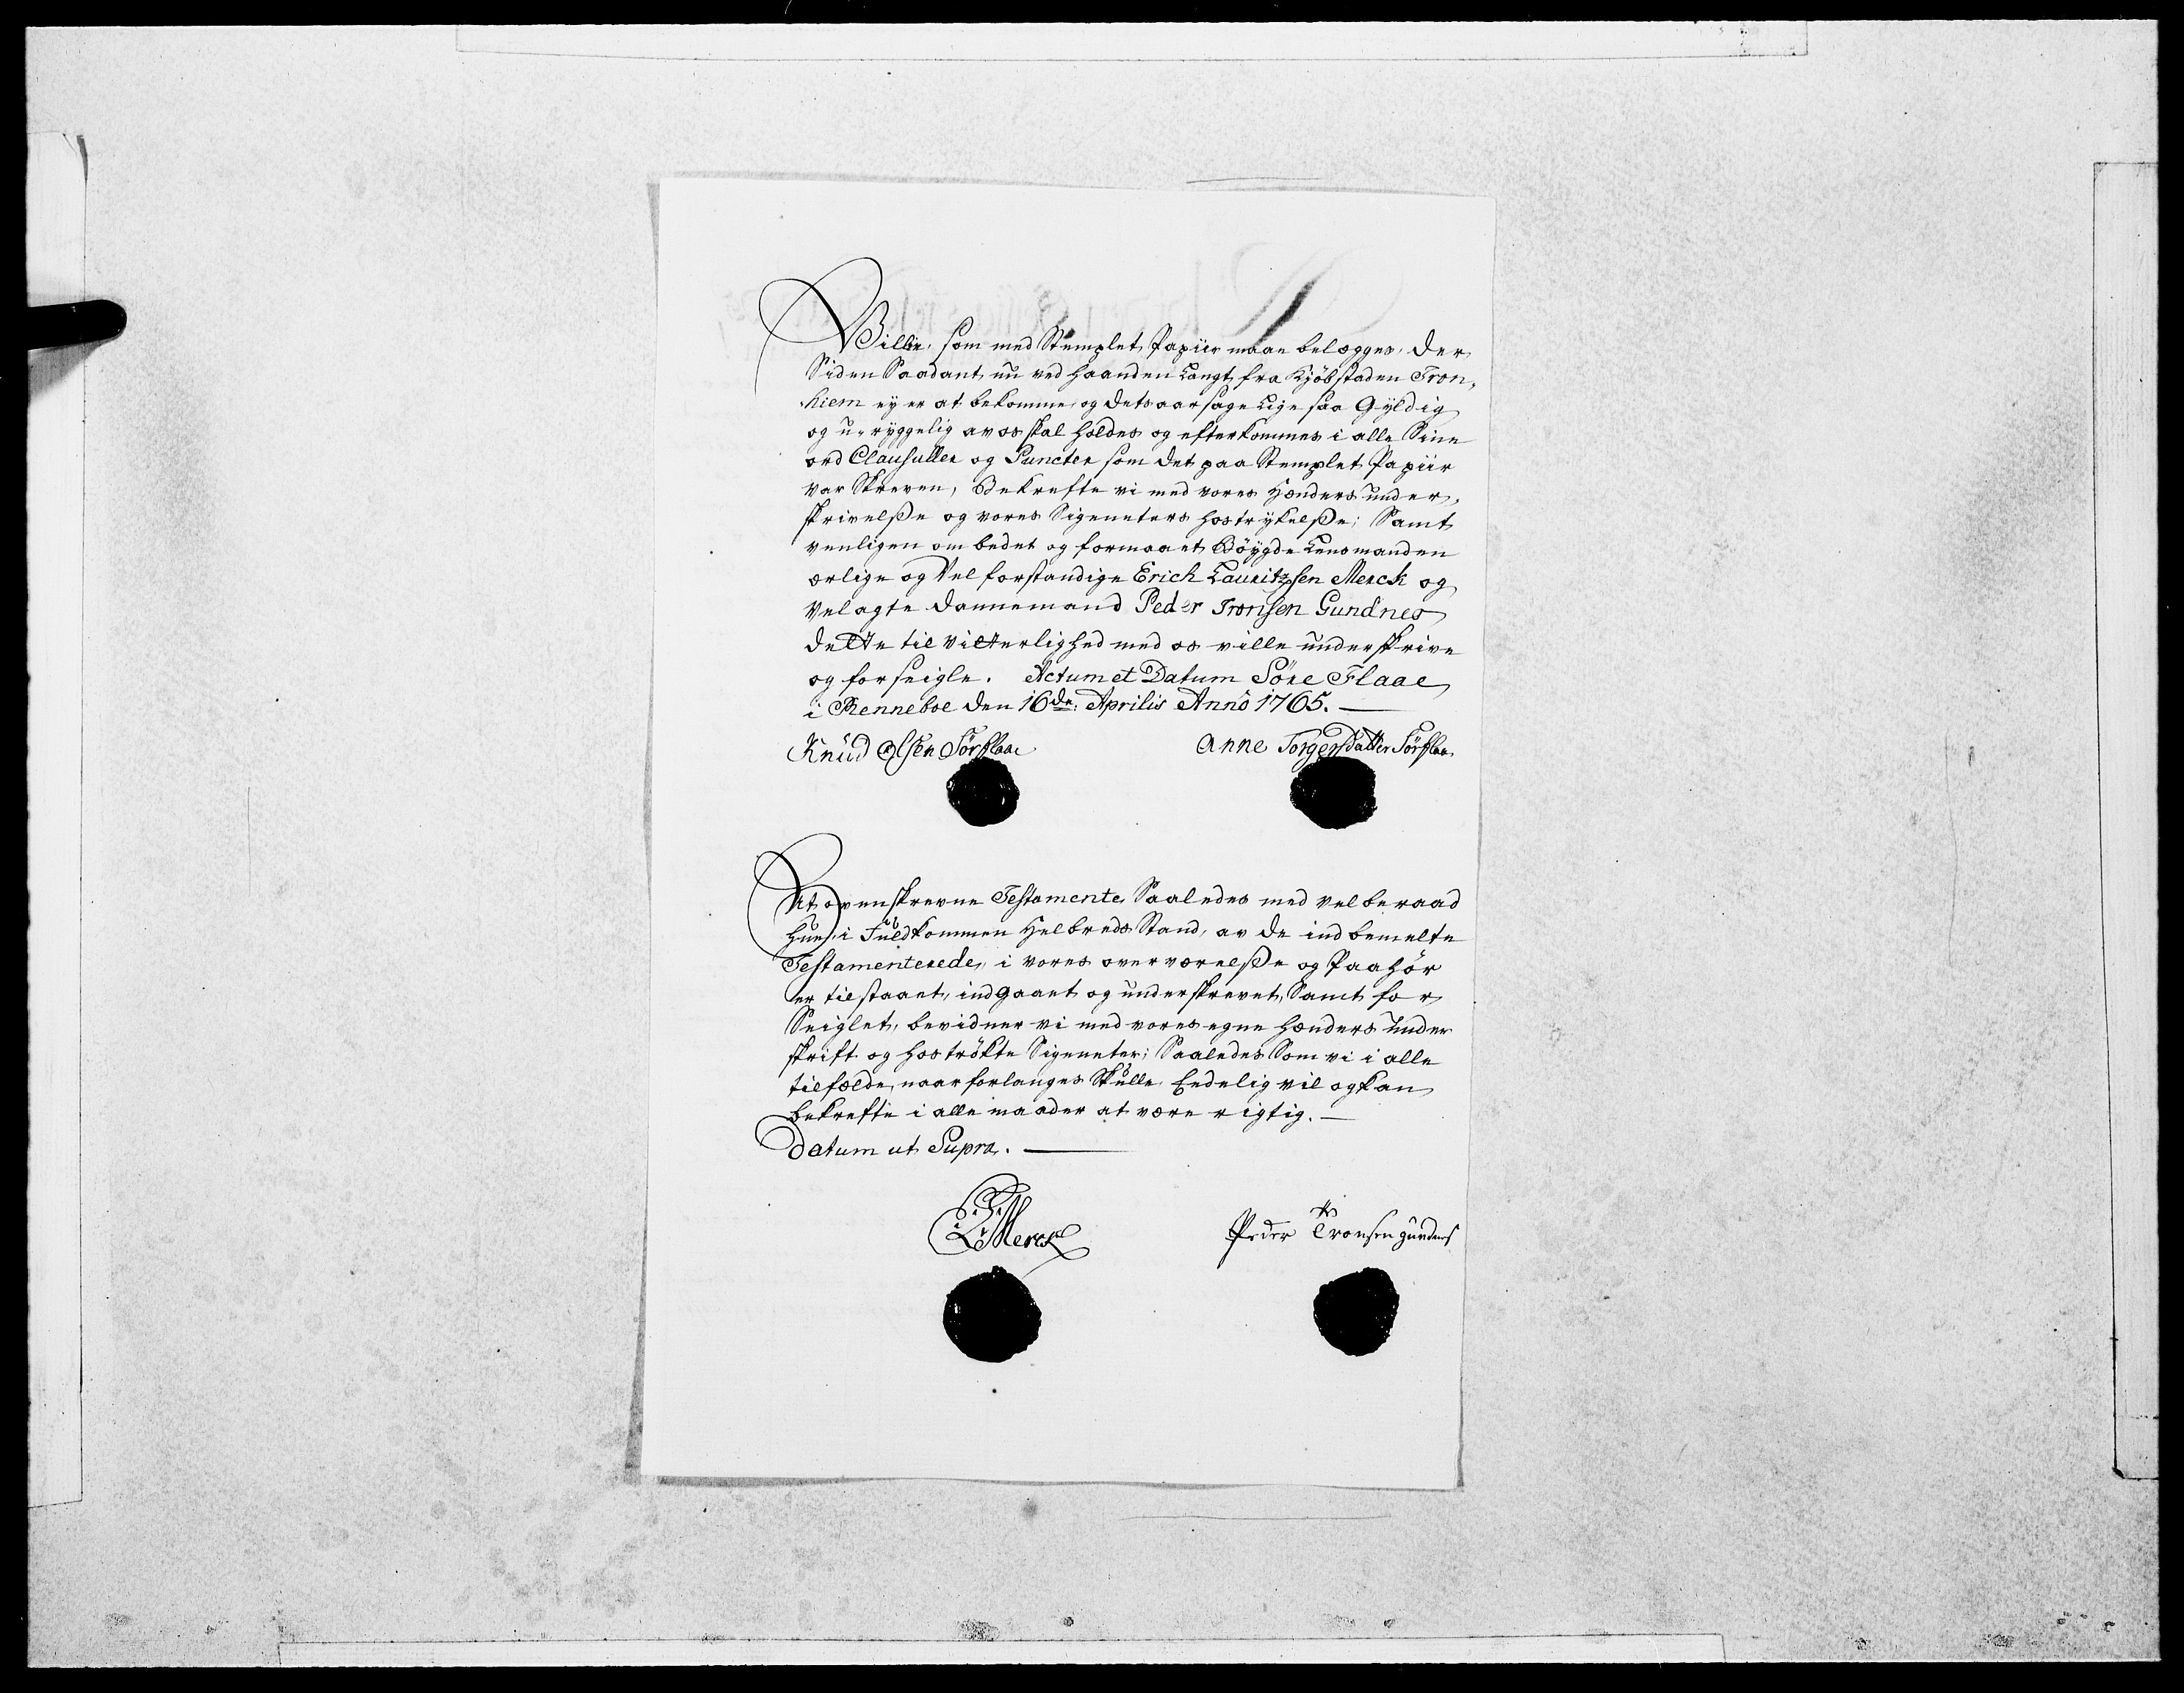 Villie, som med Stemplet Papiir maae belægges, der
Siden Saadant nu ved haanden Langt fra Kjöbstaden Tron-
hiem ej er at bekomme, og dets aarsage Lige saa Gyldig
og u-ryggelig av os skal holdes og efterkommes i alle Sine
ord Clausuller og Puncter som det paa Stemplet Papiir
var Skreven, Bekrefte vi med vores Hænders under-
skrivelsse og vores Signeters hostrykelsse; Samt
venligen ombedet og formaaet Böygde Lensmanden
ærlige og Velforstandige Erich Lauritzsen Merck og
Velagte Dannemand Peder Tronsen Gundnes
dette til vitterlighed med os ville underskrive
og forseigle. Actum et Datum Söre Flaae
i Renneboe den 16de Aprilis Anno 1765.
Knud Olsen Sörflaae
Anne Torgersdatter Sörflaae
At ovenskrevne Testamente Saaledes med velberaad
Hue, i Fuldkommen Helbreds Stand, av de indbemelte
Testamenterede, i vores overværelsse og Paahör
er tilstaaet, indgaaet og underskrevet, Samt for
Seiglet, bevidner vi med vores egne hænders under
skrift og hoströkte Signeter; Saaledes Som vi i alle
tilfælde, naar forlanges Skulle Eedelig vil og kan
bekrefte i alle maader at være rigtig.
Datum ut Supra.
E L Merck
Peder Tronsen gundnes